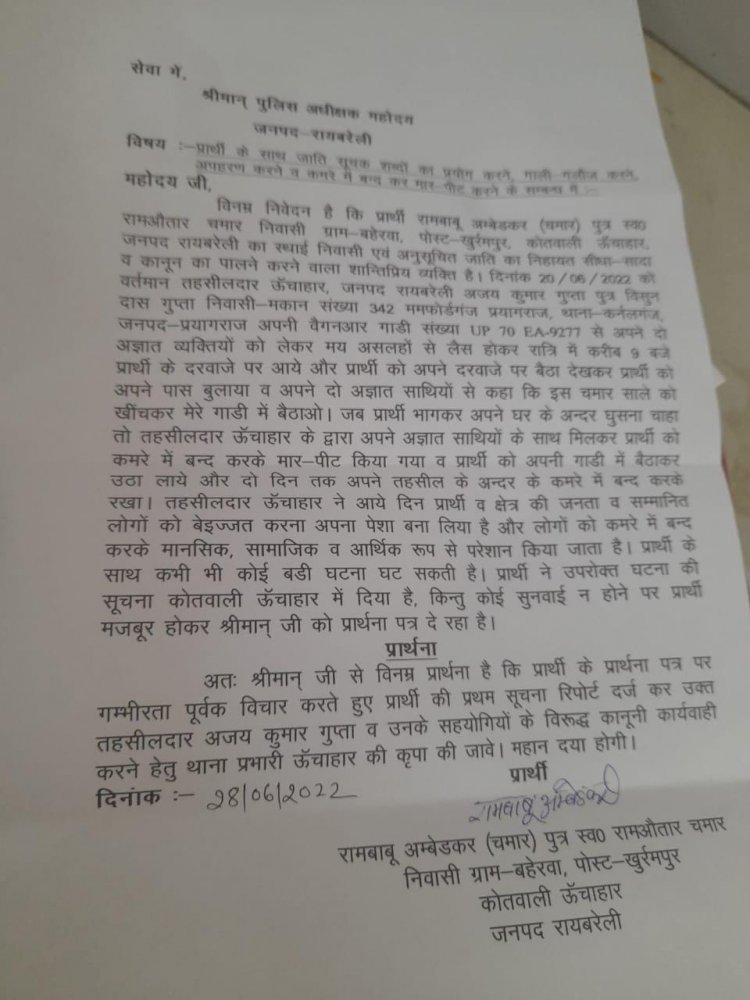 सेवा में,
श्रीमान् पुलिस अधीक्षक महोदय
जनपद-रायबरेली
विषय :-प्रार्थी के साथ जाति सूचक शब्दों का प्रयोग करने, गाली गलौज करने,
अपहरण करने व कमरे में बन्द कर मार-पीट करने के सम्बन्ध में :-
महोदय जी,
विनम्र निवेदन है कि प्रार्थी रामबाबू अम्बेडकर (चमार) पुत्र स्व0
रामऔतार चमार निवासी ग्राम-बहेरवा, पोस्ट-खुर्रमपुर, कोतवाली ऊँचाहार,
जनपद रायबरेली का स्थाई निवासी एवं अनुसूचित जाति का निहायत सीधा-सादा
व कानून का पालने करने वाला शान्तिप्रिय व्यक्ति है। दिनांक 20/06/2022 को
वर्तमान तहसीलदार ऊँचाहार, जनपद रायबरेली अजय कुमार गुप्ता पुत्र विसुन
दास गुप्ता निवासी-मकान संख्या 342 ममफोर्डगंज प्रयागराज, थाना-कर्नलगंज,
जनपद-प्रयागराज अपनी वैगनआर गाडी संख्या UP 70 EA-9277 से अपने दो
अज्ञात व्यक्तियों को लेकर मय असलहों से लैस होकर रात्रि में करीब 9 बजे
प्रार्थी के दरवाजे पर आये और प्रार्थी को अपने दरवाजे पर बैठा देखकर प्रार्थी को
अपने पास बुलाया व अपने दो अज्ञात साथियों से कहा कि इस चमार साले को
खींचकर मेरे गाडी में बैठाओ। जब प्रार्थी भागकर अपने घर के अन्दर घुसना चाहा
तो तहसीलदार ऊँचाहार के द्वारा अपने अज्ञात साथियों के साथ मिलकर प्रार्थी को
कमरे में बन्द करके मार-पीट किया गया व प्रार्थी को अपनी गाडी में बैठाकर
उठा लाये और दो दिन तक अपने तहसील के अन्दर के कमरे में बन्द करके
रखा। तहसीलदार ऊँचाहार ने आये दिन प्रार्थी व क्षेत्र की जनता व सम्मानित
लोगों को बेइज्जत करना अपना पेशा बना लिया है और लोगों को कमरे में बन्द
करके मानसिक, सामाजिक व आर्थिक रूप से परेशान किया जाता है। प्रार्थी के
साथ कभी भी कोई बडी घटना घट सकती है। प्रार्थी ने उपरोक्त घटना की
सूचना कोतवाली ऊँचाहार में दिया है, किन्तु कोई सुनवाई न होने पर प्रार्थी
मजबूर होकर श्रीमान् जी को प्रार्थना पत्र दे रहा है।
प्रार्थना
अतः श्रीमान् जी से विनम्र प्रार्थना है कि प्रार्थी के प्रार्थना पत्र पर
गम्भीरता पूर्वक विचार करते हुए प्रार्थी की प्रथम सूचना रिपोर्ट दर्ज कर उक्त
तहसीलदार अजय कुमार गुप्ता व उनके सहयोगियों के विरूद्ध कानूनी कार्यवाही
करने हेतु थाना प्रभारी ऊँचाहार की कृपा की जावे। महान दया होगी।
दिनांक :- 28/06/2022
प्रार्थी
रामबाबू अम्बेडकर
रामबाबू अम्बेडकर (चमार) पुत्र स्व0 रामऔतार चमार
निवासी ग्राम-बहेरवा, पोस्ट-खुर्रमपुर
कोतवाली ऊँचाहार
जनपद रायबरेली